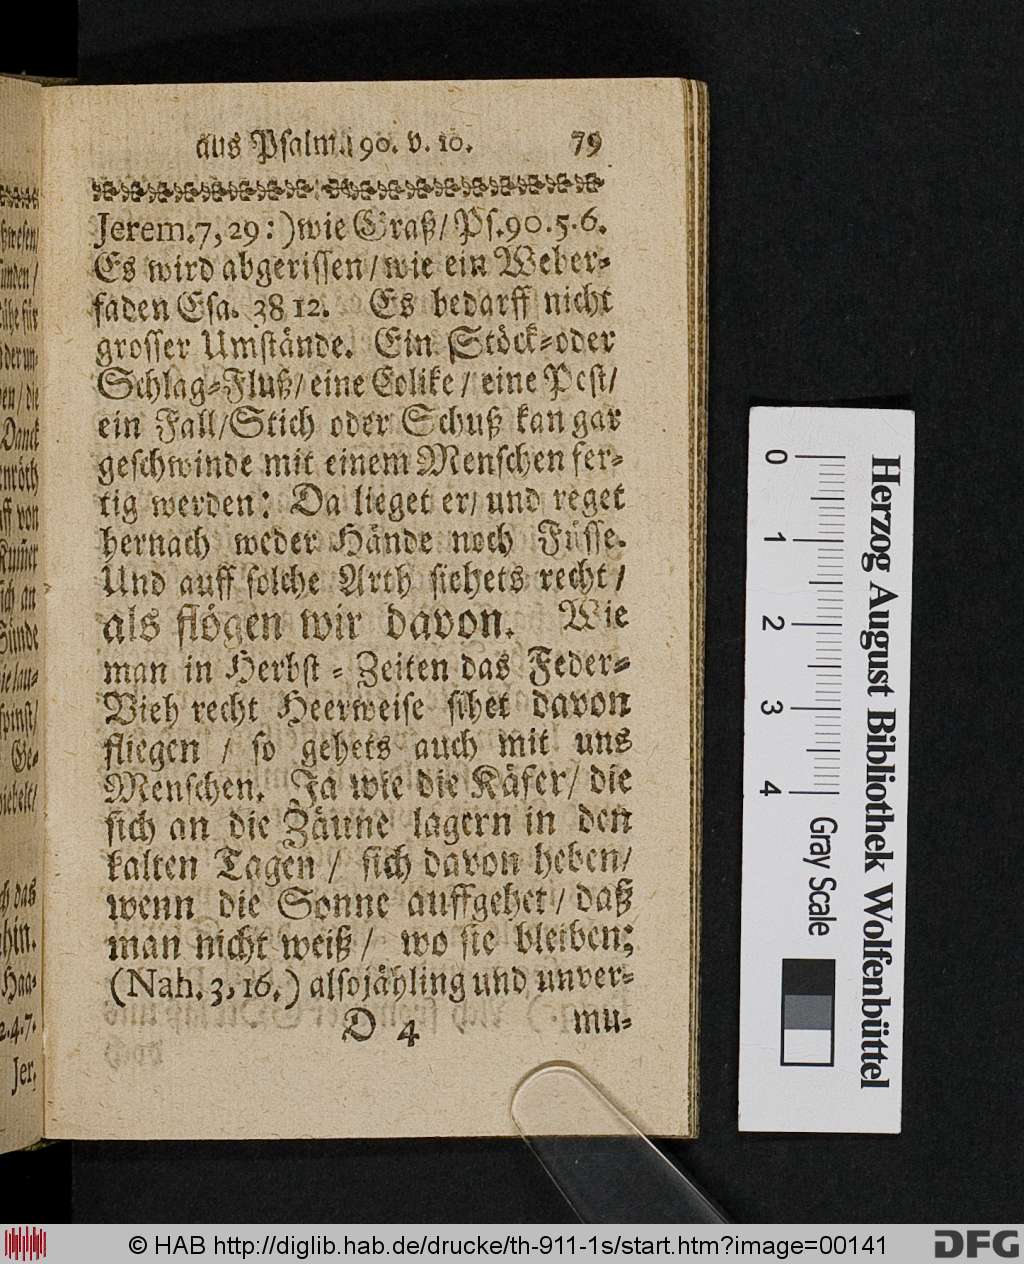 aus Psalm. 90. v. 10. 79
Jerem. 7, 29:) wie Graß / Ps. 90. 5. 6.
Es wird abgerissen / wie ein Weber-
faden Esa. 38 12. Es bedarff nicht
grosser Umstände. Ein Stöck-oder
Schlag-Fluß / eine Colike / eine Pest /
ein Fall / Stich oder Schuß kan gar
geschwinde mit einem Menschen fer-
tig werden: Da lieget er / und reget
hernach weder Hände noch Füsse.
Und auff solche Arth siehets recht /
als flögen wir davon. Wie
man in Herbst-Zeiten das Feder-
Vieh recht Heerweise sihet davon
fliegen / so gehets auch mit uns
Menschen. Ja wie die Käfer / die
sich an die Zäune lagern in den
kalten Tagen / sich davon heben /
wenn die Sonne auffgehet / daß
man nicht weiß / wo sie bleiben;
(Nah. 3, 16.) also jähling und unver-
D 4 mu-
sunden /
der un-
en / die
Danck
ff von
sich an
Sünde
spinst /
Ge-
das
hin.
Haa-
2. 4. 7.
Jer.
0 1 2 3 4
Gray Scale
Herzog August Bibliothek Wolfenbüttel
© HAB http://diglib.hab.de/drucke/th-911-1s/start.htm?image=00141
DFG